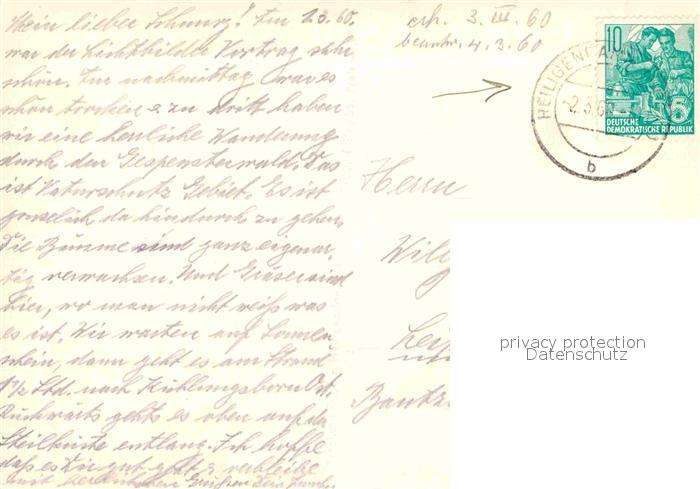 Mein lieber Schnurz! Am 1.3.60.
war der Lichtbilder Vortrag sehr
schön. Am nachmittag war es
schön trocken & zu dritt haben
wir eine herrliche Wanderung
durch den Gespensterwald. Das
ist Naturschutz Gebiet. Es ist
gruselich da hindurch zu gehen,
Die Bäume sind ganz eigenar-
tig verwachsen. Und Gräser sind
hier, wo man nicht weiß was
es ist. Wir warten auf Sonnen
schein, dann geht es am Strand
1½ Std. nach Kühlungsborn Ost.
Rückwärts gehts es oben auf der
Steilküste entlang. Ich hoffe
daß es Dir gut geht & verbleibe
mit herzlichen Grüßen Dein
erh. 3. III. 60
beantw. 4.3.60
HEILIGENDA
-2.3.6
b
10
DEUTSCHE
DEMOKRATISCHE REPUBLIK
Herrn
Will
Leip
Bautz
privacy protection
Datenschutz